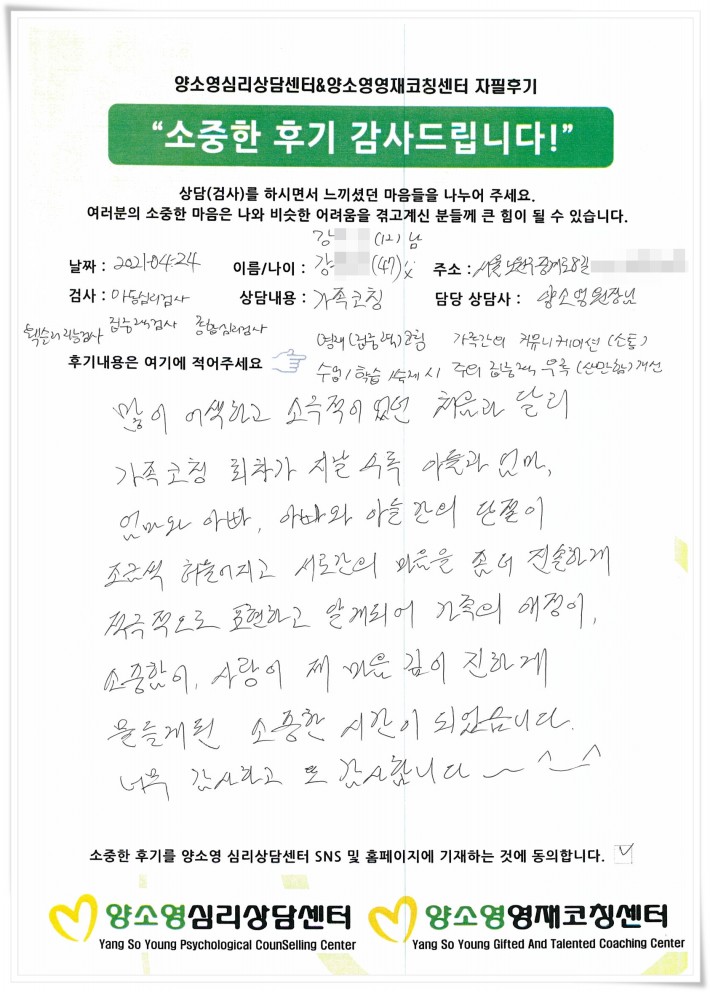 양소영심리상담센터&양소영영재코칭센터 자필후기
“소중한 후기 감사드립니다!”
상담(검사)를 하시면서 느끼셨던 마음들을 나누어 주세요.
여러분의 소중한 마음은 나와 비슷한 어려움을 겪고계신 분들께 큰 힘이 될 수 있습니다.
강 (12) 남
날짜 : 2021-04-24 이름/나이 : 강 (47) 주소 : 서울 노원구 중계로8길
검사 : 아동심리검사 상담내용 : 가족코칭 담당 상담사 : 양소영 원장님
웩슬러지능검사 집중력검사 종합심리검사
영재(집중력)코칭 가족간의 커뮤니케이션 (소통)
후기내용은 여기에 적어주세요 수업/학습/숙제시 주의 집중력 부족(산만함)개선
많이 어색하고 소극적이었던 처음과 달리
가족코칭 회차가 지날 수록 아들과 엄마,
엄마와 아빠, 아빠와 아들간의 단절이
조금씩 허물어지고 서로간의 마음을 좀 더 진솔하게
적극적으로 표현하고 알게되어 가족의 애정이,
소중함이, 사랑이 제 마음 깊이 진하게
물들게된 소중한 시간이 되었습니다.
너무 감사하고 또 감사합니다 ~ ^_^
소중한 후기를 양소영 심리상담센터 SNS 및 홈페이지에 기재하는 것에 동의합니다. ✓
양소영심리상담센터 양소영영재코칭센터
Yang So Young Psychological CounSelling Center Yang So Young Gifted And Talented Coaching Center